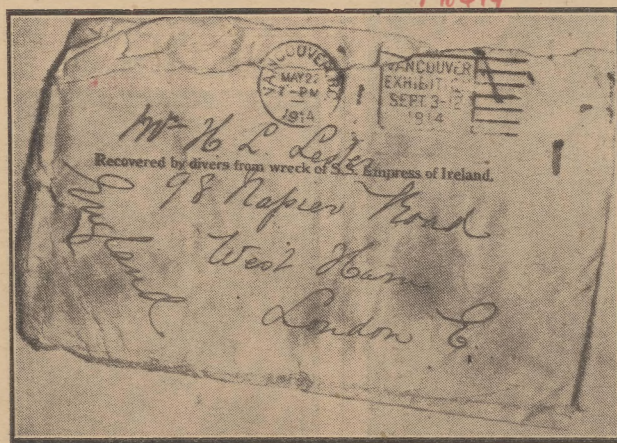 VANCOUVER, B.C.
MAY 22
PM
1914
VANCOUVER
EXHIBITION
SEPT 3-12
1914
Mr H L Lester
Recovered by divers from wreck of S.S. Empress of Ireland.
98 Napier Road
West Ham
London E.
England